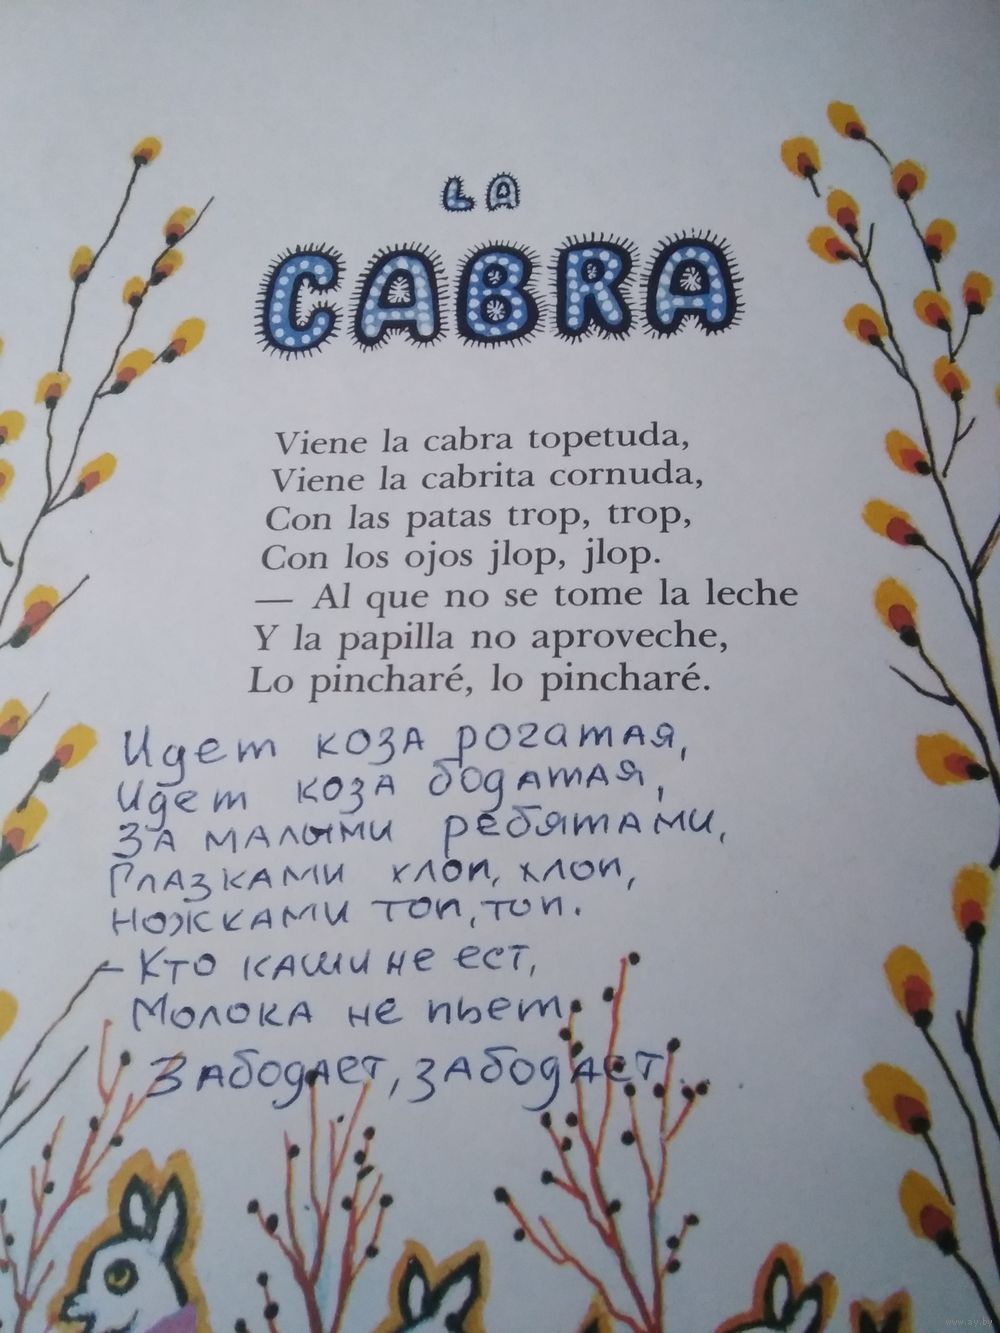 LA
CABRA
Viene la cabra topetuda,
Viene la cabrita cornuda,
Con las patas trop, trop,
Con los ojos jlop, jlop.
— Al que no se tome la leche
Y la papilla no aproveche,
Lo pincharé, lo pincharé.
Идет коза рогатая,
Идет коза бодатая,
За малыми ребятами,
Глазками хлоп, хлоп,
Ножками топ, топ.
– Кто каши не ест,
Молока не пьет
Забодает, забодает.
www.ay.by